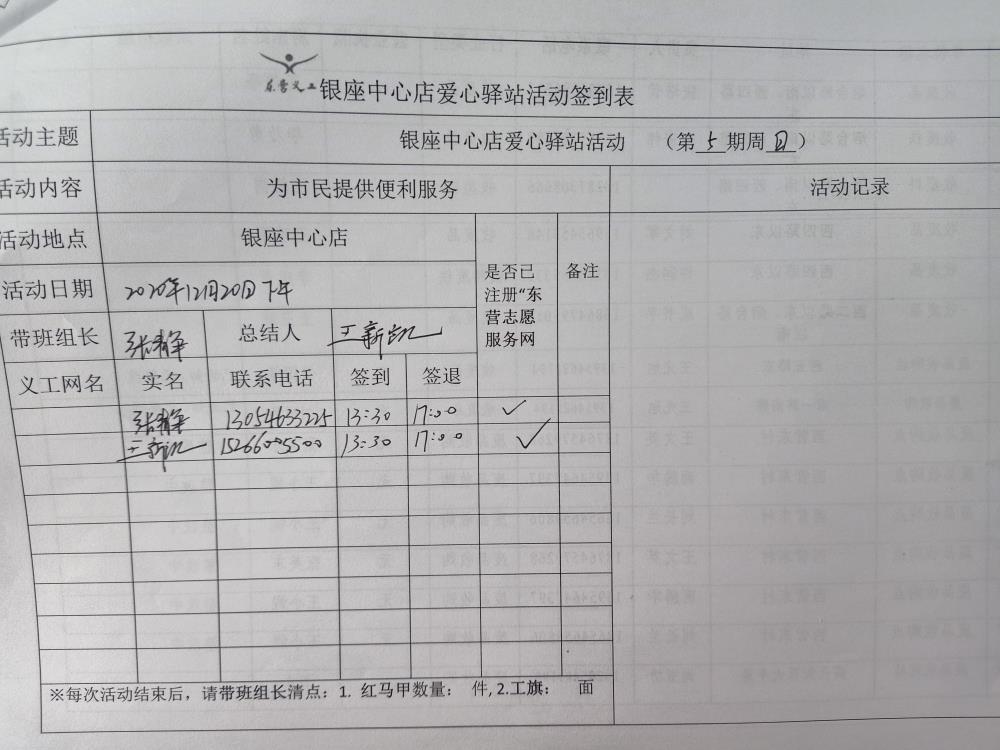 东营义工 银座中心店爱心驿站活动签到表
活动主题 银座中心店爱心驿站活动 （第5期周日）
活动内容 为市民提供便利服务 活动记录
活动地点 银座中心店
活动日期 2020年12月20日下午
是否已注册“东营志愿服务网 备注
带班组长 张静 总结人 王新凯
义工网名 实名 联系电话 签到 签退
张静 13054633225 13:30 17:00 ✓
王新凯 15266005500 13:30 17:00 ✓
※每次活动结束后，请带班组长清点：1. 红马甲数量： 件, 2.工旗： 面